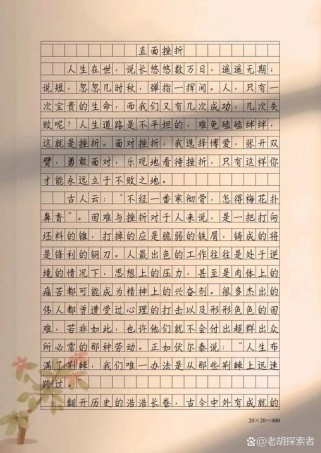 直面挫折
人生在世,说长悠悠数万日,遥遥无期;
说短,忽忽几时秋,弹指一挥间。人,只有一
次宝贵的生命,而我们又有几次成功,几次失
败呢?人生道路是不平坦的,难免磕磕绊绊,
这就是挫折。面对挫折,我选择博爱,张开双
臂,勇敢面对,乐观地看待挫折。只有这样你
才能永远立于不败之地。
古人云:“不经一番寒彻骨,怎得梅花扑
鼻香”。困难与挫折对于人来说,是一把打向
坯料的锤,打掉的应是脆弱的铁屑,铸成的将
是锋利的钢刀。人最出色的工作往往是处于逆
境的情况下,思想上的压力,甚至是肉体上的
痛苦都可能成为精神上的兴奋剂。很多杰出的
伟人都曾遭受过心理的打击以及形形色色的困
难,若非如此,也许他们就不会付出超群出众
所必需的那种劳动。正如伏尔泰说:“人生布
满了荆棘,我们唯一办法是从那些荆棘上迅速
跨过。
翻开历史的浩浩长卷,古今中外有成就的
20×20=400
@老胡探索者